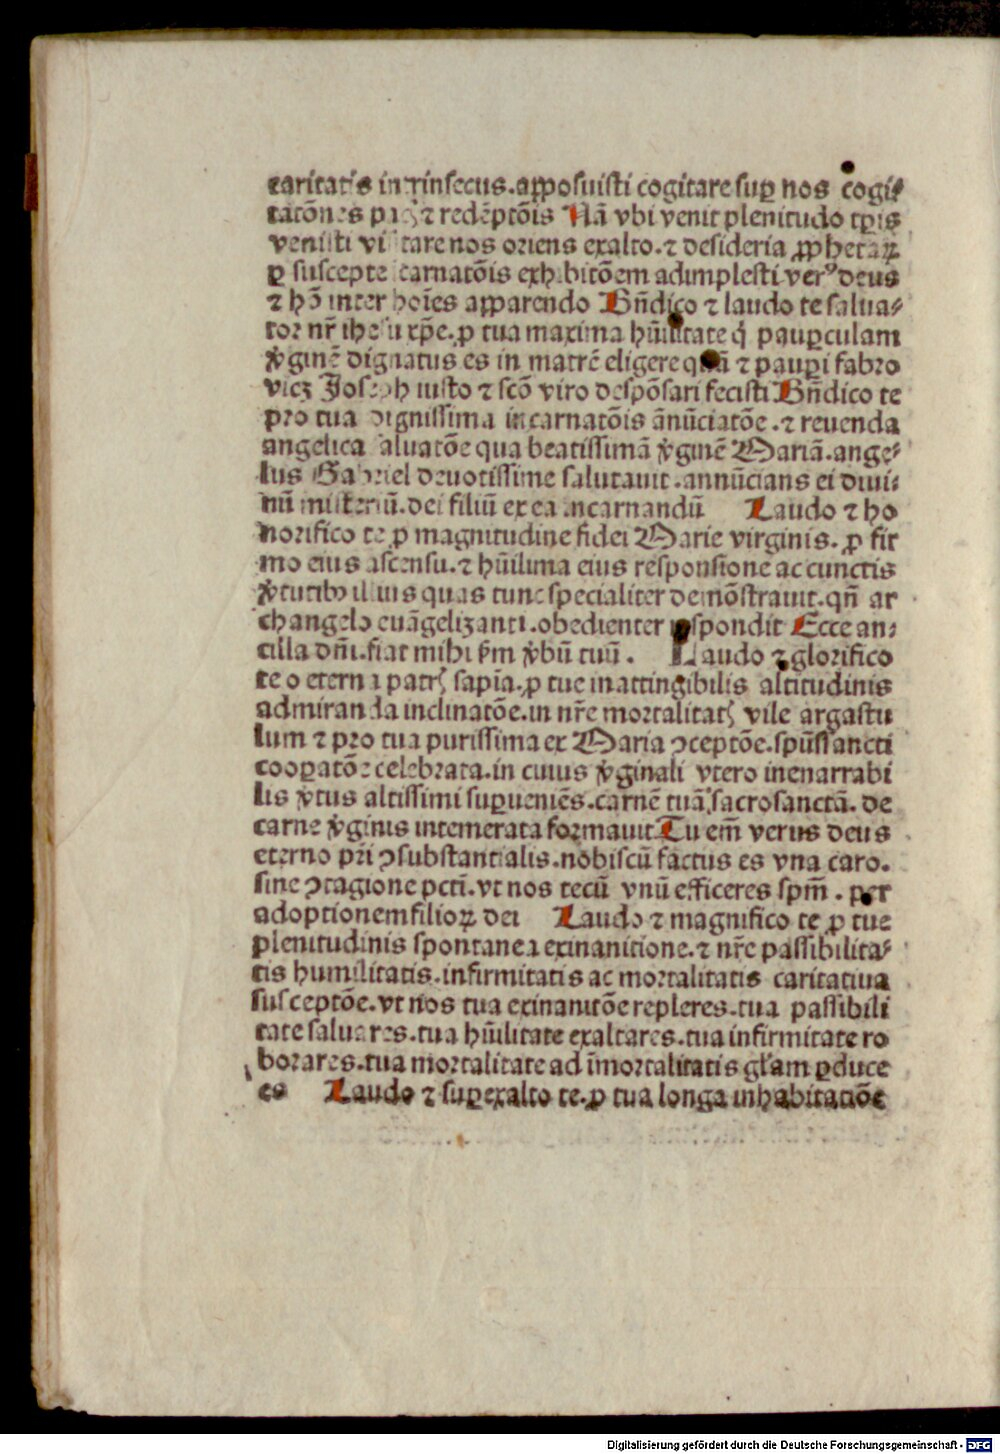 caritatis intrinsecus.apposuisti cogitare suꝑ nos cogi⸗
tatōnes pacꝭ ⁊ redēptōis Nā vbi venit plenitudo tꝑis
venisti visitare nos oriens exalto.⁊ desideria ꝓphetaꝝ
ꝑ suscepte icarnatōis exhibitōem adimplesti verꝰ deus
⁊ hō inter hoīes apparendo Bn̄dico ⁊ laudo te salua⸗
tor nr̄ ihesu xp̄e.ꝓ tua maxima hūilitate q̇ pauꝑculam
v̇ginē dignatus es in matrē eligere quā ⁊ pauꝑi fabro
vicꝫ Joseph iusto ⁊ scō viro despōsari fecisti Bn̄dico te
pro tua dignissima incarnatōis ānūciatōe.⁊ reuenda
angelica saluatōe qua beatissimā v̇ginē Mariā.ange⸗
lus Gabriel deuotissime salutauit.annūcians ei diui⸗
nū misteriū.dei filiū ex ea incarnandū Laudo ⁊ ho
norifico te ꝓ magnitudine fidei Marie virginis.ꝓ fir
mo eius ascensu.⁊ hūilima eius responsione ac cunctis
v̇tutibꝰ illius quas tunc specialiter demōstrauit.qn̄ ar
changelo euāgelizanti.obedienter respondit Ecce an⸗
cilla dn̄i.fiat mihi ẜm v̇bū tuū. Laudo ⁊ glorifico
te o eterna patrꝭ sapīa.ꝓ tue inattingibilis altitudinis
admiranda inclinatōe.in nr̄e mortalitatꝭ vile argastu
lum ⁊ pro tua purissima ex Maria ↄceptōe.spūssancti
cooꝑatōe celebrata.in cuius v̇ginali vtero inenarrabi
lis v̇tus altissimi suꝑueniēs.carnē tuā sacrosanctā.de
carne v̇ginis intemerata formauit Tu em̄ verus deus
eterno pr̄i ↄsubstantialis.nobiscū factus es vna caro.
sine ↄtagione pctī.vt nos tecū vnū efficeres spm̄.per
adoptionem filioꝝ dei Laudo ⁊ magnifico te ꝓ tue
plenitudinis spontanea exinanitione.⁊ nr̄e passibilita⸗
tis humilitatis.infirmitatis ac mortalitatis caritatiua
susceptōe.vt nos tua exinanitōe repleres.tua passibili
tate saluares.tua hūilitate exaltares.tua infirmitate ro
borares.tua mortalitate ad īmortalitatis gl̄am ꝑduce
es Laudo ⁊ suꝑexalto te.ꝓ tua longa inhabitatiōe
Digitalisierung gefördert durch die Deutsche Forschungsgemeinschaft - DFG